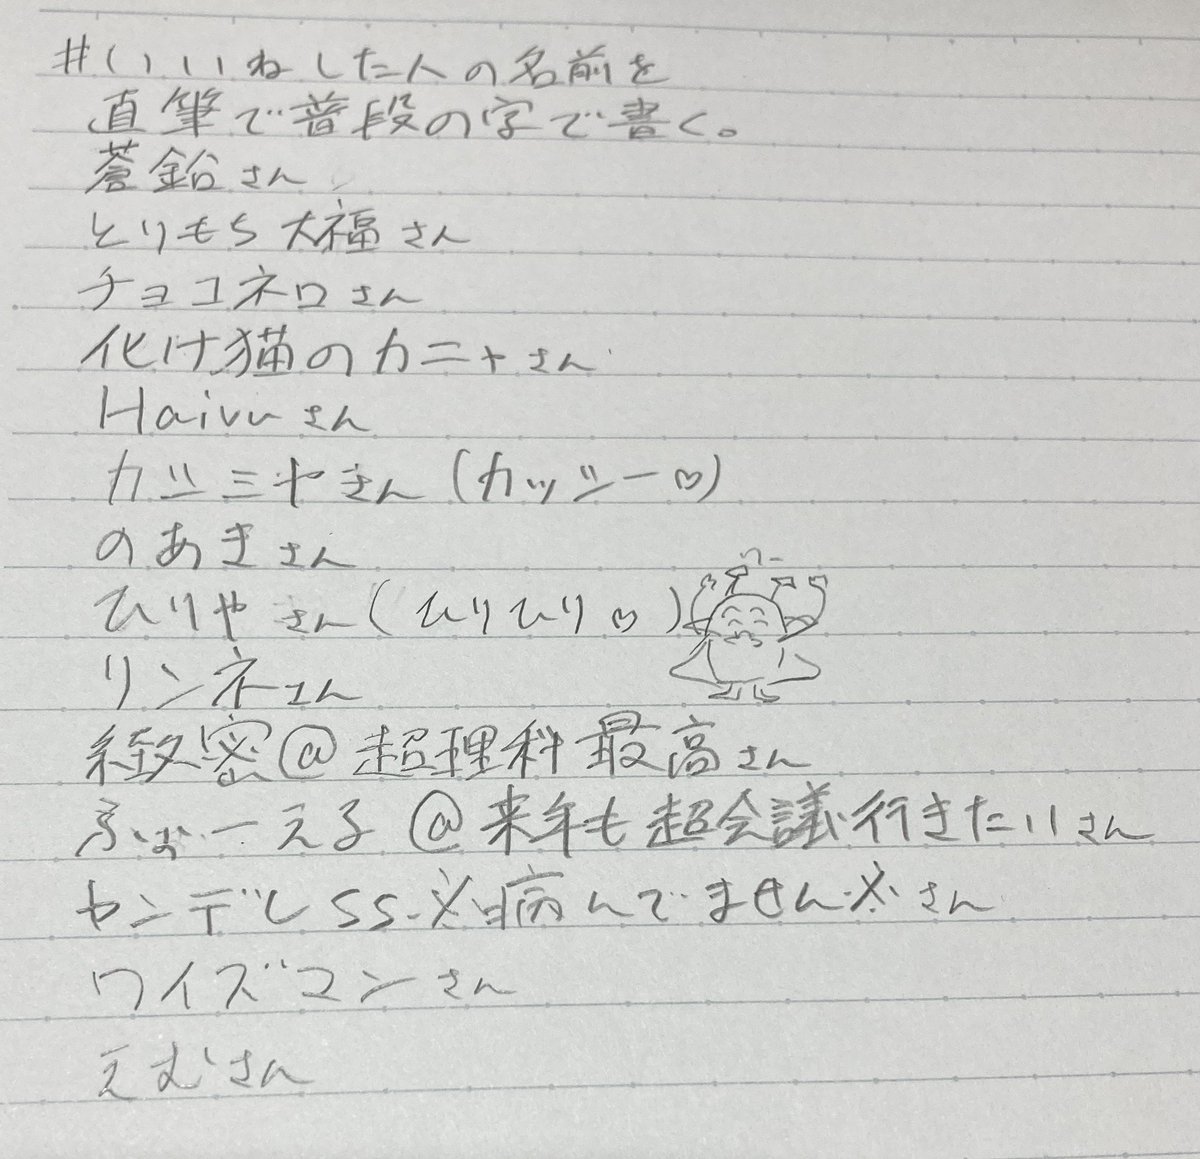 #いいねした人の名前を
直筆で普段の字で書く。
蒼鉛さん
とりもち大福さん
チョコネロさん
化け猫のカニャさん
Haivuさん
カツミヤさん(カッツー♡)
のあきさん
ひりやさん(ひりひり♡)
リンネさん
緻密@超理科最高さん
ふぉーえる@来年も超会議行きたいさん
ヤンデレSS※病んでません※さん
ワイズマンさん
えむさん